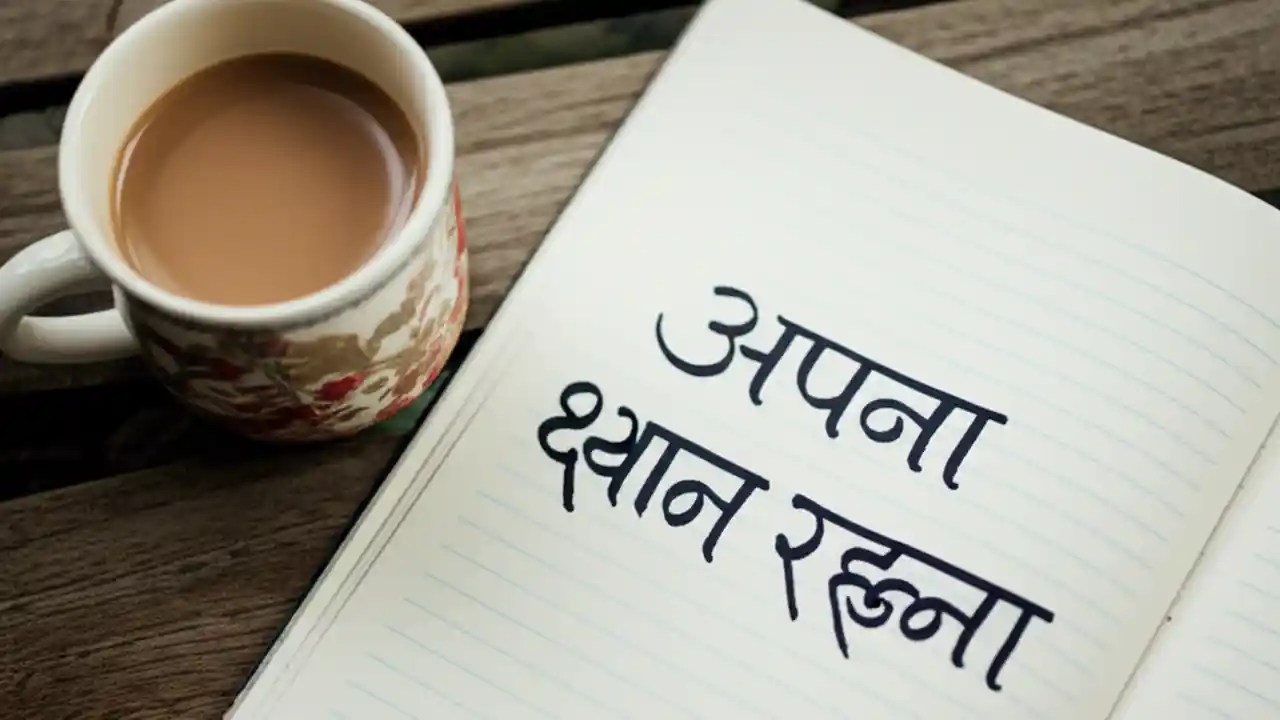 अपना
ध्यान रखना